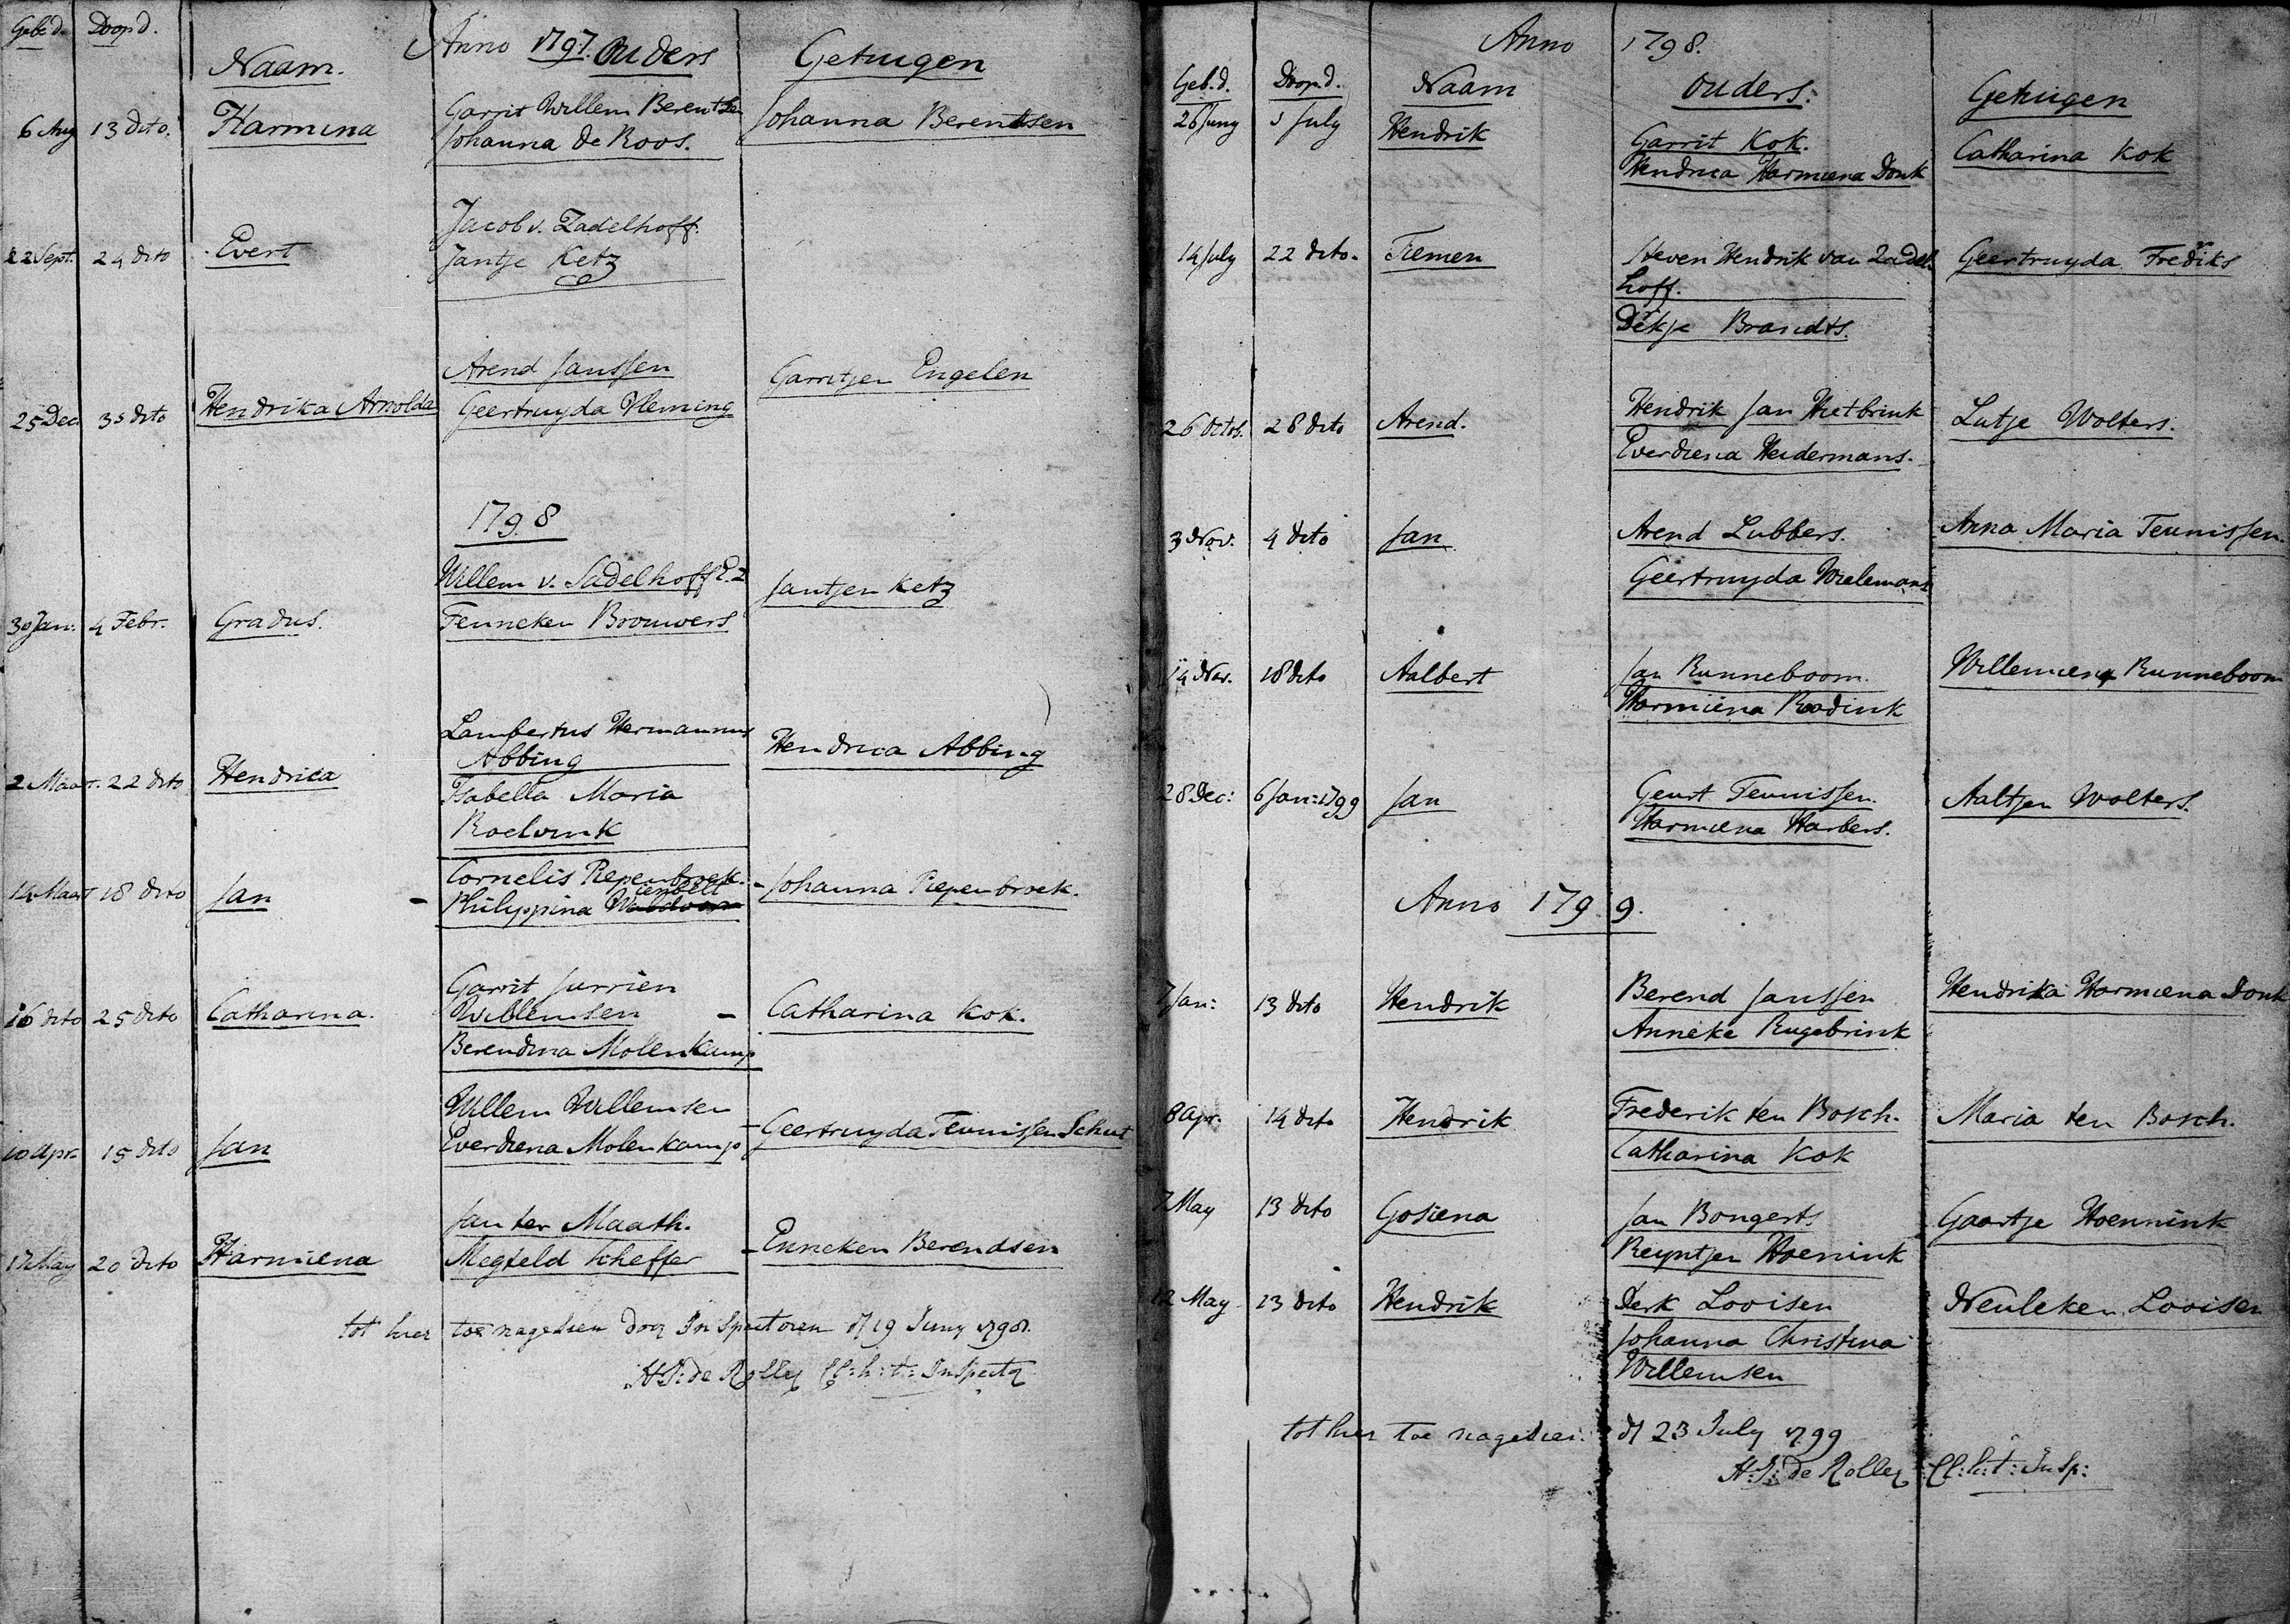 Geb.d. Doop d.
Anno 1797.
Naam. Ouders Getuigen
6 Aug 13 dito. Harmina Garrit Willem Berentsen Johanna Berentsen
Johanna de Roos.
Jacob v. Zadelhoff.
22 Sept. 24 dito Evert Jantje Ketz
Arend Janssen Garritjen Engelen
25 Dec. 31 dito Hendrika Arnolda Geertruyda Vleming
1798
Willem v. Sadelhoff E.Z Jantjen Ketz
30 Jan: 4 Febr. Gradus. Fenneken Brouwers
Lambertus Hermannus
Abbing Hendrica Abbing
2 Maart. 22 dito Hendrica Isabella Maria
Roelvink
Cornelis Piepenbroek. - Johanna Piepenbroek.
14 Maart 18 dito Jan - Philippina
Garrit Jurrien
16 dito 25 dito Catharina. Willemsen - Catharina Kok.
Berendina Molenkamp
Willem Willemsen
10 Apr. 15 dito Jan Everdiena Molenkamp - Geertruyda Teunissen Schut
Jan ter Maath.
17 May 20 dito Harmiena Megteld Scheffer - Enneken Berendsen
tot hier toe nagesien door Inspectoren d 19 Juny 1798.
H: I: de Rolleg Cl: h: t: Inspector
Anno 1798.
Geb.d. Doop.d. Naam Ouders. Getuigen
26 Juny 1 July Hendrik Garrit Kok. Catharina Kok
Hendrica Harmiena Donk
14 July 22 dito. Tiemen Steven Hendrik van Zadel- Geertruyda Fredriks
hoff.
Derkje Brandts.
26 Octob. 28 dito Arend. Hendrik Jan Hietbrink Lutje Wolters.
Everdiena Heidermans.
3 Nov. 4 dito Jan Arend Lubbers. Anna Maria Teunissen.
Geertruyda Wielemans
14 Nov. 18 dito Aalbert Jan Runneboom. Willemiena Runneboom
Harmiena Roodink
28 Dec: 6 Jan: 1799 Jan Geurt Teunissen. Aaltjen Wolters.
Harmiena Harbers.
Anno 1799.
7 Jan: 13 dito Hendrik Berend Janssen Hendrika Harmiena Donk
Anneke Rugebrink
8 Apr. 14 dito Hendrik Frederik ten Bosch. Maria ten Bosch.
Catharina Kok
7 May 13 dito Gosiena Jan Bongerts Gaartje Hoennink
Reyntjen Hoenink
12 May 13 dito Hendrik Derk Looisen Neuleken Looisen
Johanna Christina
Willemsen
tot hier toe nagesien. d 23 July 1799
H: I: de Rolleg Cl: h: t: Insp: